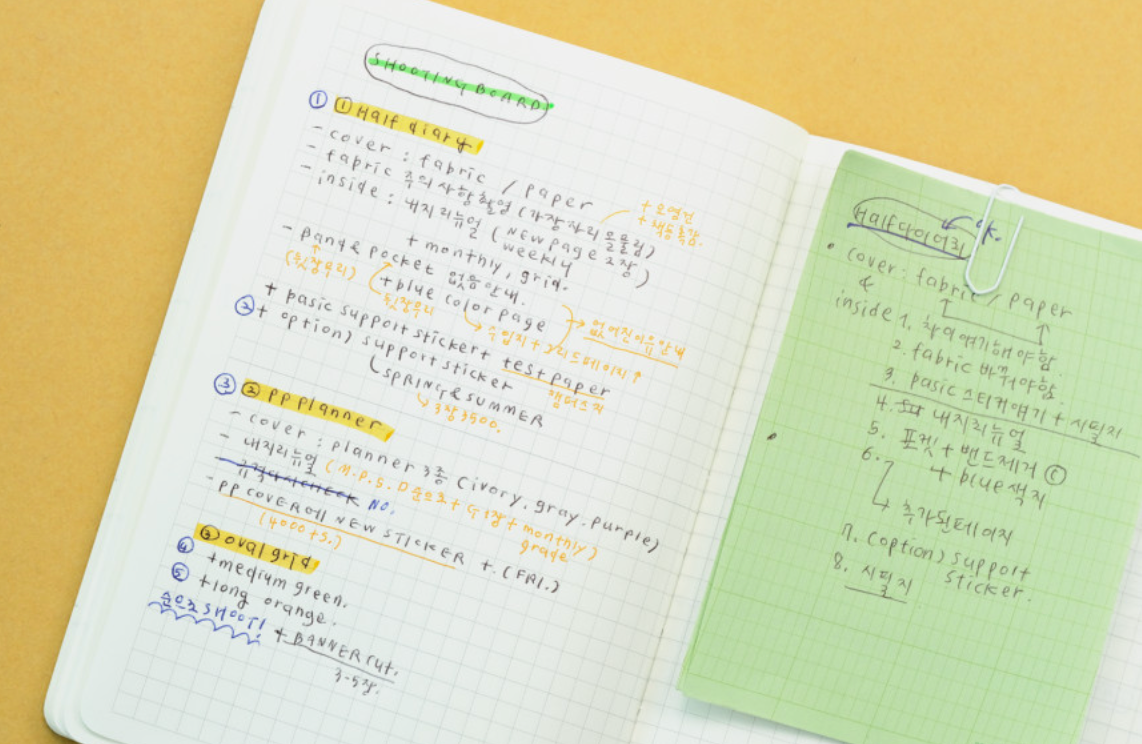 SHOOTING BOARD
① ① Half diary
- cover : fabric / paper
- fabric 주의사항촬영 (가장자리 올풀림)
- inside : 내지리뉴얼 (NEW page 2장)
weekly
+ monthly, grid.
+ 책등특감.
- band & pocket 없음안내.
(뒷장우리)
+ blue color page
뒷장우리
없어진이유안내
② + basic support sticker + test paper
+ option) support sticker
SPRING & SUMMER
3장 3500.
③ ② pp planner
- cover : planner 3종 (ivory, gray, purple)
- 내지리뉴얼 (M.P.S.D 순으로 + 수1장 + monthly)
grade
NO.
- pp COVER에 NEW STICKER + (FRI.)
(4000+S.)
④ ③ oval grid
+ medium green.
⑤ + long orange.
순으로 SHOOT!
+ BANNER cut.
3-5장.
Half다이어리
OK.
• cover : fabric / paper
&
inside 1. 차이얘기해야함.
2. fabric 바꿔야함.
3. basic 스티커얘기 + 시필지
4. 내지리뉴얼
5. 포켓 + 밴드제거 ⓒ
6. + blue색지
↳ 추가된페이지
7. (option) support
sticker.
8. 시필지